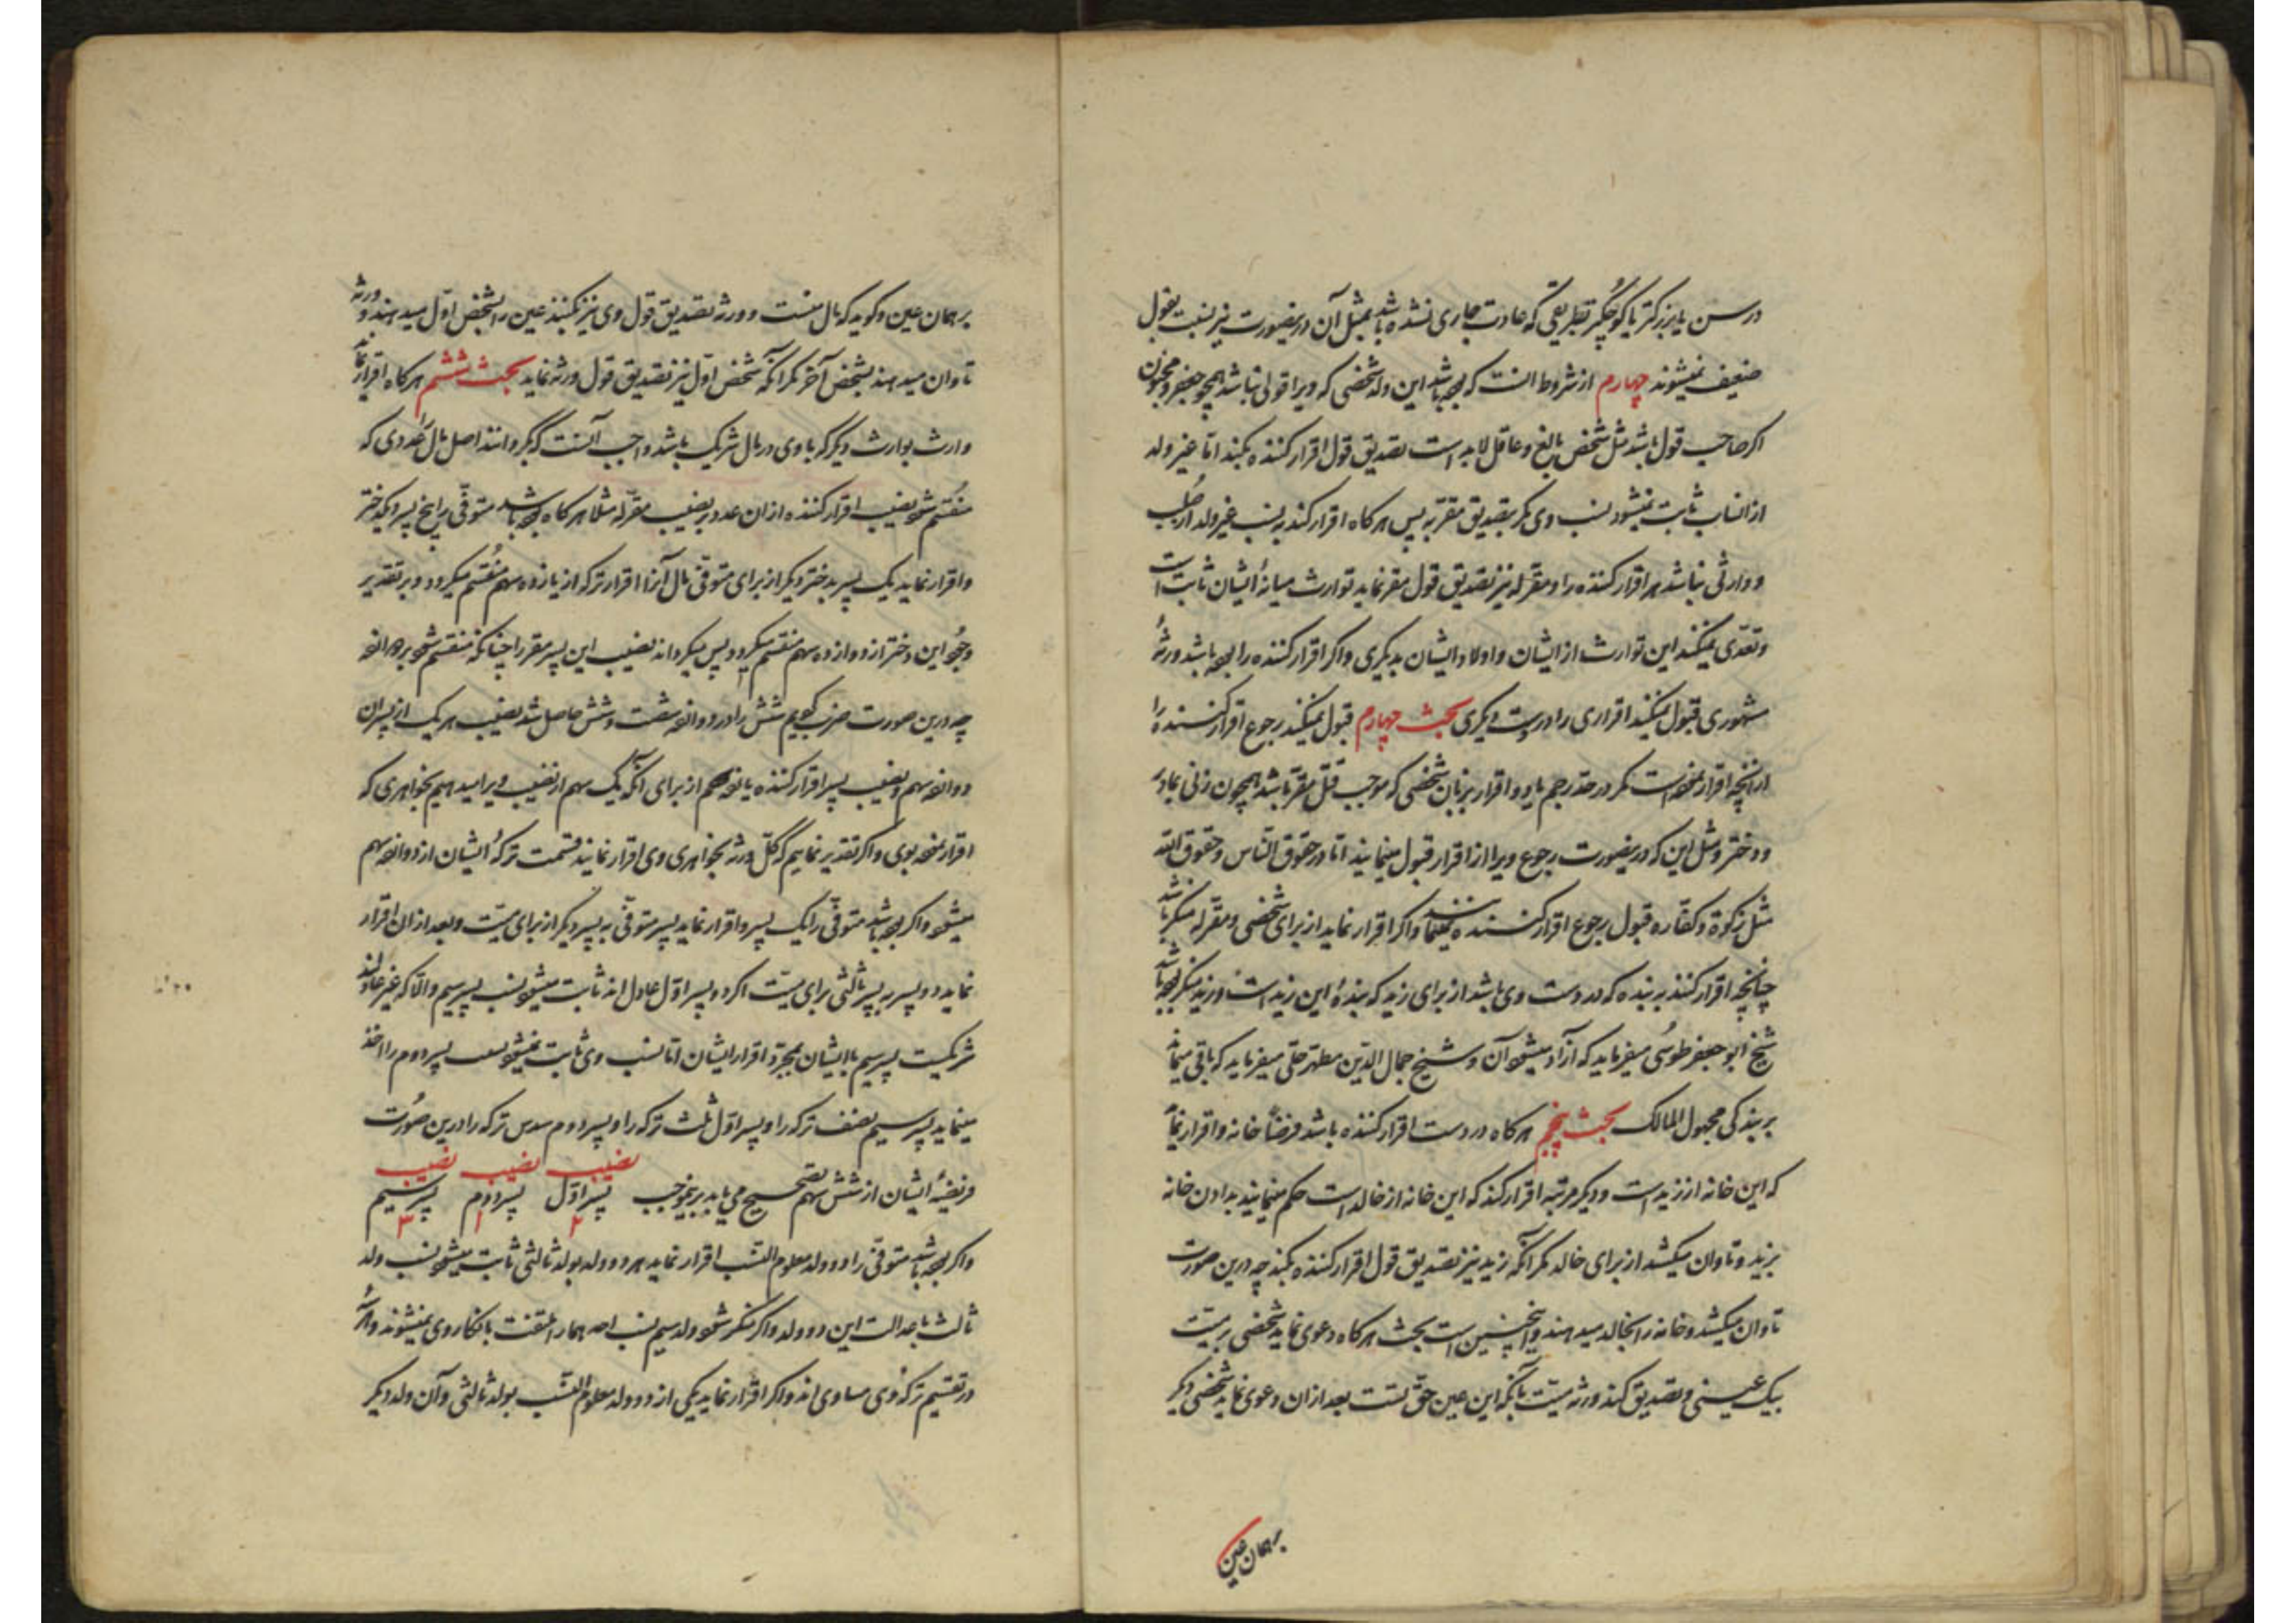 در سن یا بزرکتر یا کوچکتر بطریقی که عادت جاری نشده باشد بمثل آن درینصورت نیز بنسبت بقول
ضعیف نمیشوند چهارم از شروط انست که بوده باشد این ولد شخصی که ویرا قولی نباشد همچو صغیر و مجنون
اکر صاحب قول باشد مثل شخص بالغ و عاقل لابد است تصدیق قول اقرار کننده بکند اما غیر ولد
از انساب ثابت نمیشود نسب وی مکر بتصدیق مقربه پس هرکاه اقرار کند به نسب غیر ولد از صلب
و وارثی نباشد مر اقرار کننده را و مقرله نیز تصدیق قول مقر نماید توارث میانهٔ ایشان ثابت است
و تعدّی نمیکند این توارث از ایشان و اولاد ایشان بدیکری و اکر اقرار کننده را بوده باشد ورثهٔ
مشهوری قبول نمیکند اقراری را در نسب دیکری بحث چهارم قبول نمیکند رجوع اقرار کننده را
از آنچه اقرار نموده است مکر در حد رجم باید و اقرار بزبان شخصی که موجب قتل مقر باشد همچون زنی بمادر
و دختر و مثل این که درینصورت رجوع ویرا از اقرار قبول مینمایند اما در حقوق الناس و حقوق الله
مثل زکوة و کفاره قبول رجوع اقرار کننده نمینمایند و اکر اقرار نماید از برای شخصی و مقرله منکر باشد
چنانچه اقرار کنند به بنده که در دست وی باشد از برای زید که بندهٔ این زید است و زید منکر بوده باشد
شیخ ابو جعفر طوسی میفرماید که آزاد میشود آن و شیخ جمال الدین مطهر حلی میفرماید که باقی میماند
بر بندکی مجهول المالک بحث پنجم هرکاه در دست اقرار کننده باشد فرضًا خانه و اقرار نماید
که این خانه از زید است و دیکر مرتبه اقرار کند که این خانه از خالد است حکم مینمایند بدادن خانه
بزید و تاوان میکشد از برای خالد مکر آنکه زید نیز تصدیق قول اقرار کننده بکند چه درین صورت
تاوان نمیکشد و خانه را بخالد میدهند و همچنین است بحث هرکاه دعوی نماید شخصی بر میت
بیک عینی و تصدیق کند ورثه میت بآنکه این عین حق تست بعد از ان دعوی نماید شخصی دیکر
بر همان عین
بر همان عین و کوید که مال منست و ورثه تصدیق قول وی نیز بکنند عین را بشخص اول میدهند و ورثه
تاوان میدهند بشخص آخر مکر آنکه شخص اول نیز تصدیق قول ورثه نماید بحث ششم هرکاه اقرار نماید
وارث بوارث دیکر که با وی در مال شریک باشد واجب آنست که بکردانند اصل مال را عددی که
منقسم شود نصیب اقرار کننده از ان عدد بر نصیب مقرله مثلا هرکاه بوده باشد متوفی را پنج پسر و یک دختر
و اقرار نماید یک پسر بدختر دیکر از برای متوفی مال آنرا اقرار ترکه از یازده سهم منقسم میکردد و بر تقدیر
وجود این دختر از دوازده سهم منقسم میکردد پس میکرداند نصیب این پسر مقر را چنانکه منقسم شود بر دوانزده
چه درین صورت ضرب کنیم شش را در دوانزده شصت و شش حاصل شد نصیب هر یک از پسران
دوانزده سهم و نصیب پسر اقرار کننده یانزده سهم از برای آنکه یک سهم از نصیب ویرا میدهیم بخواهری که
اقرار نموده بوی و اکر تقدیر نماییم که کل ورثه بخواهری وی اقرار نمایند قسمت ترکهٔ ایشان از دوانزده سهم
میشود و اکر بوده باشد متوفی را یک پسر و اقرار نماید پسر متوفی به پسر دیکر از برای میت و بعد از ان اقرار
نماید دو پسر به پسر ثالثی برای میت اکر دو پسر اول عادل اند ثابت میشود نسب پسر سیم و الا که غیر عادلند
شریکست پسر سیم با ایشان بمجرد اقرار ایشان اما نسب وی ثابت نمیشود پسر دوم را اخذ
مینماید پسر سیم نصف ترکه را و پسر اول ثلث ترکه را و پسر دوم سدس ترکه را درین صورت
فریضهٔ ایشان از شش سهم تصحیح می یابد برینموجب نصیب پسر اول ۲ نصیب پسر دوم ۱ نصیب پسر سیم ۳
و اکر بوده باشد متوفی را دو ولد معلوم النسب اقرار نماید هر دو ولد بولد ثالثی ثابت میشود نسب ولد
ثالث با عدالت این دو ولد و اکر منکر شود ولد سیم نسب احدهما را التفت بانکار وی نمیشوند و هر سه
در تقسیم ترکهٔ وی مساوی اند و اکر اقرار نماید یکی از دو ولد معلوم النسب بولد ثالثی و آن ولد دیکر